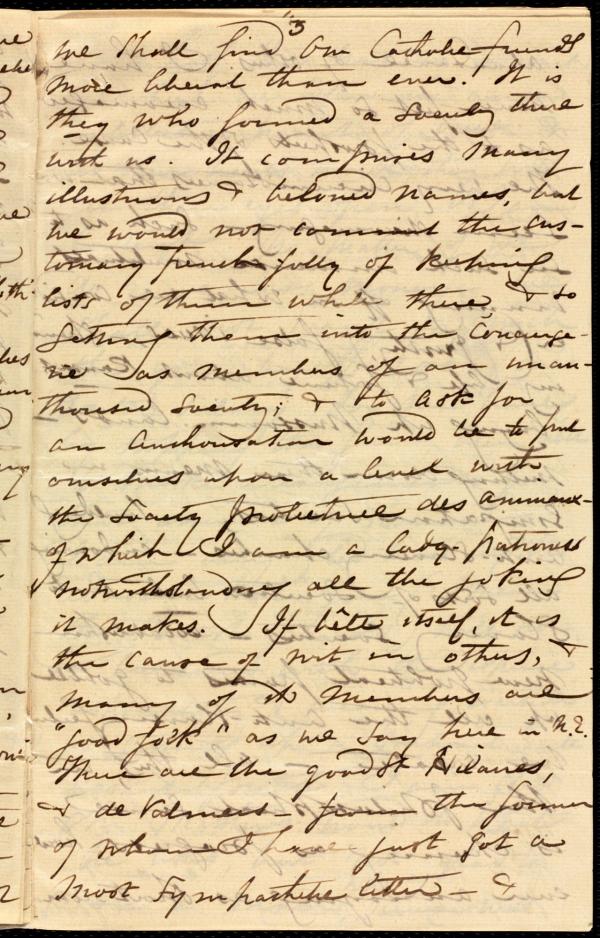 3
we shall find our Catholic friends
more liberal than ever. It is
they who formed a Society there
with us. It comprises many
illustrious & beloved names, but
we would not commit the cus-
tomary french folly of keeping
lists of them while there, & so
getting them into the Concierge-
rie as members of an unau-
thorised Society; & to ask for
an authorisation would be to put
ourselves upon a level with
the Society protectrice des animaux-
of which I am a lady-patroness
notwithstanding all the joking
it makes. If bête itself, it is
the cause of wit in others, &
many of its members are
"good folk" as we say here in N.E.
There are the good St Hilaires,
& de Valmers - from the former
of whom I have just got a
most sympathetic letter - &